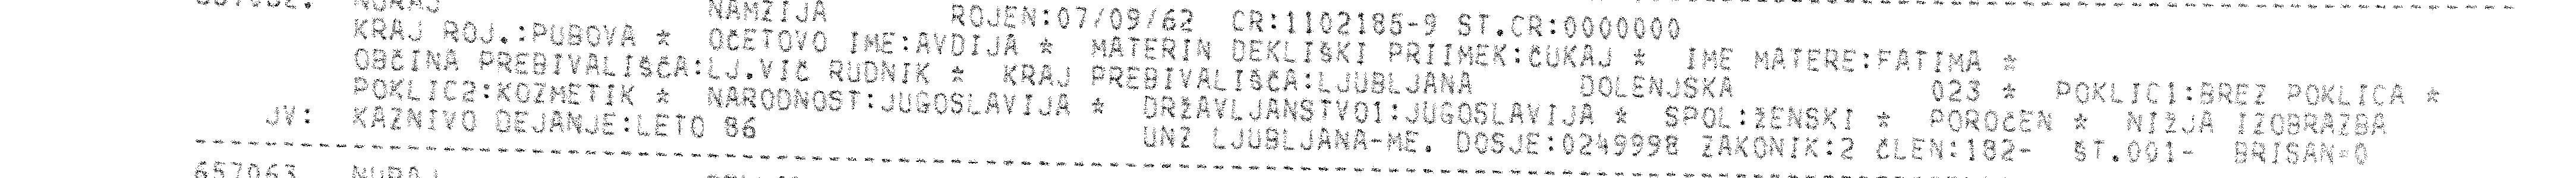 NURAJ NAMZIJA ROJEN:07/09/62 CR:1102185-9 ST.CR:0000000
KRAJ ROJ.:PUBOVA * OČETOVO IME:AVDIJA * MATERIN DEKLIŠKI PRIIMEK:ČUKAJ * IME MATERE:FATIMA *
OBČINA PREBIVALIŠČA:LJ.VIČ RUDNIK * KRAJ PREBIVALIŠČA:LJUBLJANA DOLENJSKA 023 * POKLIC1:BREZ POKLICA *
POKLIC2:KOZMETIK * NARODNOST:JUGOSLAVIJA * DRŽAVLJANSTVO1:JUGOSLAVIJA * SPOL:ŽENSKI * POROČEN * NIŽJA IZOBRAZBA
JV: KAZNIVO DEJANJE:LETO 86 UNZ LJUBLJANA-ME. DOSJE:0249998 ZAKONIK:2 ČLEN:182- ŠT.001- BRISAN=0
657063 NURAJ